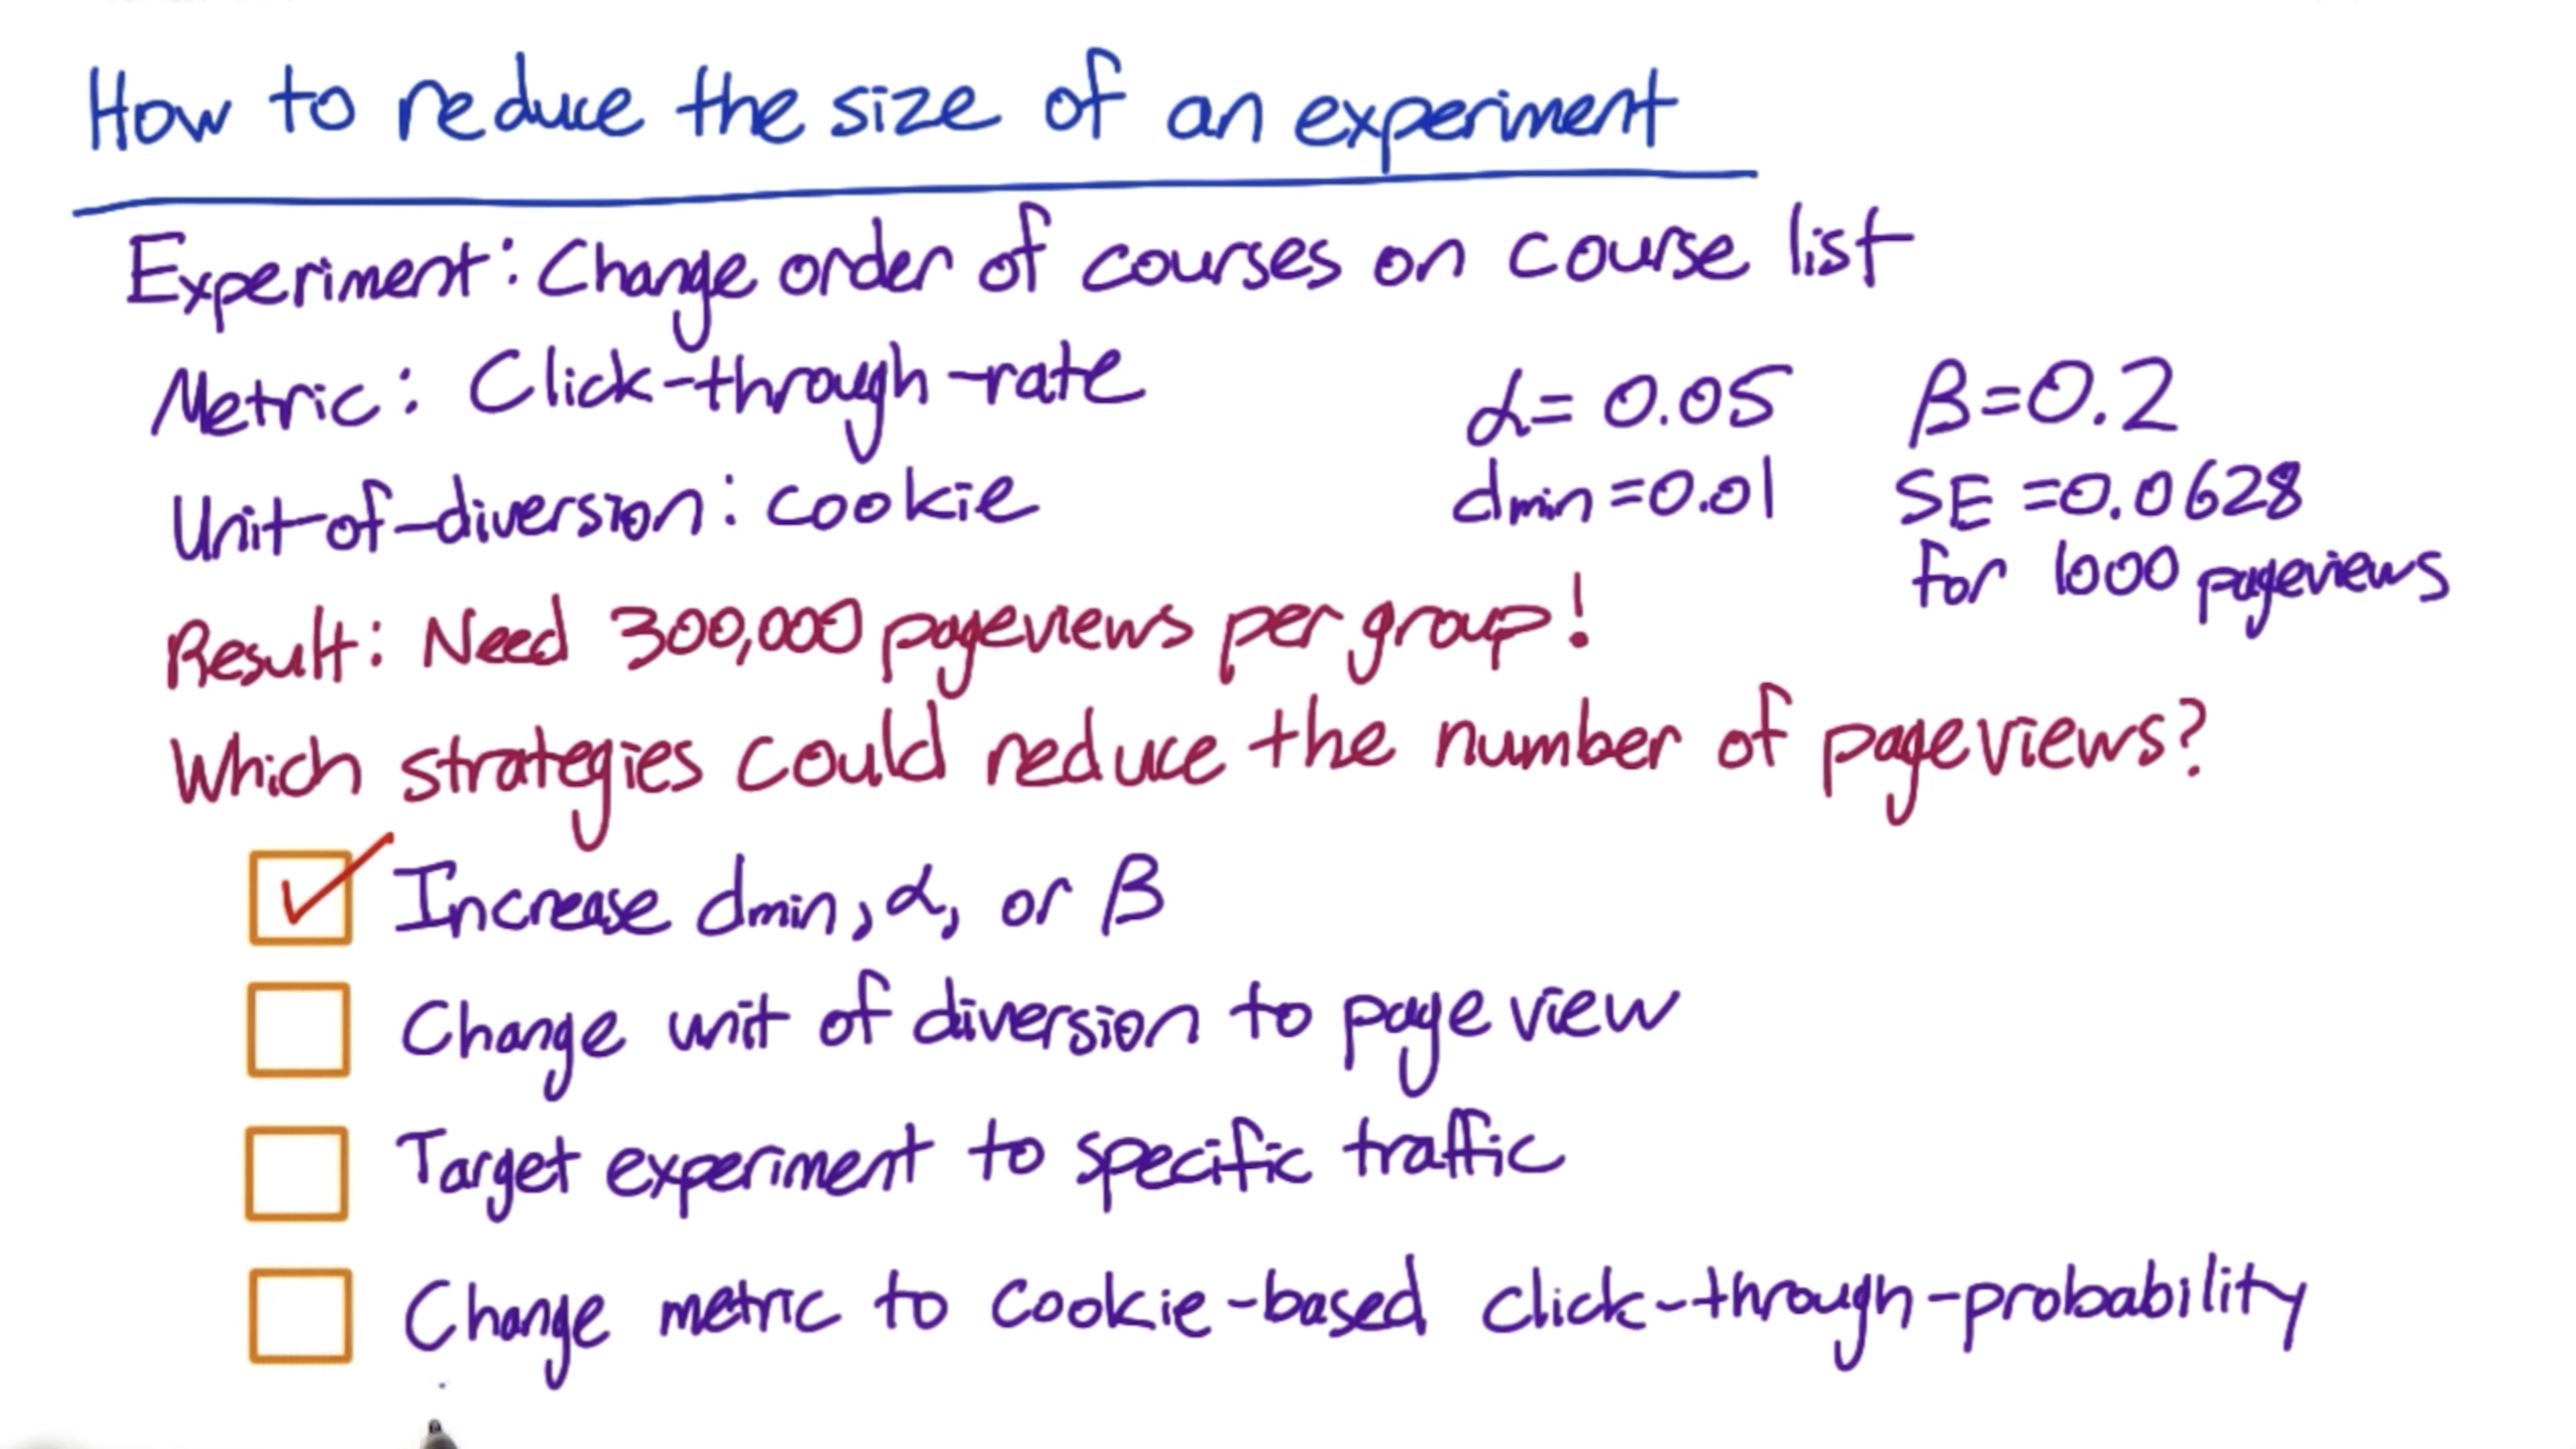 How to reduce the size of an experiment
Experiment: Change order of courses on course list
Metric: Click-through-rate
α= 0.05 β=0.2
Unit-of-diversion: cookie
dmin =0.01 SE =0.0628
for 1000 pageviews
Result: Need 300,000 pageviews per group!
Which strategies could reduce the number of pageviews?
Increase dmin, α, or β
Change unit of diversion to page view
Target experiment to specific traffic
Change metric to cookie-based click-through-probability